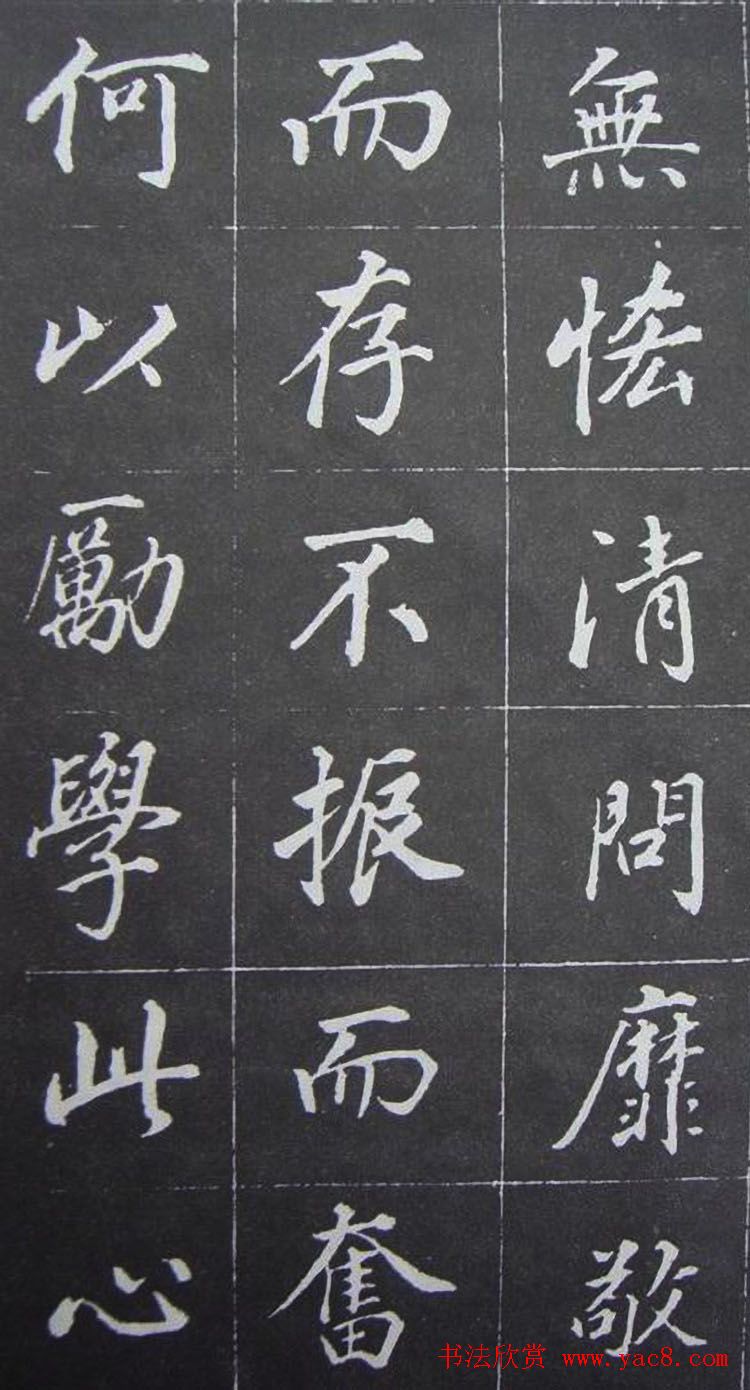 無怭清問靡敢
而存不振而奮
何以勵學此心
书法欣赏 www.yac8.com